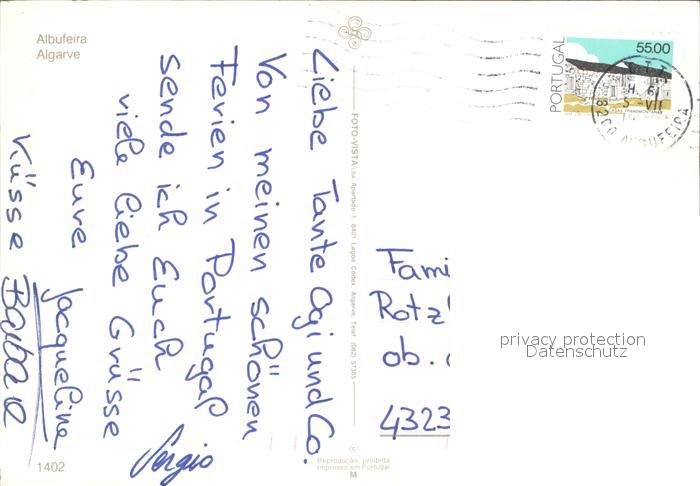 Albufeira
Algarve
Liebe Tante Ogi und Co.
Von meinen schönen
Ferien in Portugal
sende ich Euch
viele liebe Grüsse
Eure Jacqueline
Küsse Barbara
Sergio
1402
FOTO-VISTA Lda. Apartado 1 8401 Lagoa Codex, Algarve, Telef. (082) 57365
©
Reprodução proibida
Impresso em Portugal
M
PORTUGAL
55.00
CASAS TRANSMONTANAS
8200 ALBUFEIRA
Fami
Rotz
ob.
4323
privacy protection
Datenschutz